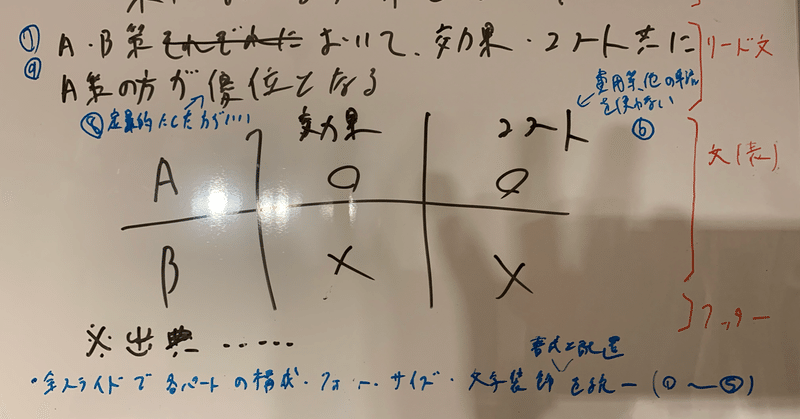 ⑦ A・B策それぞれにおいて、効果・コスト共に リード文
⑨ A策の方が優位となる
費用等、他の手法を使わない
⑧定量的にした方がいい 効果 コスト ⑥
A ○ ○ 文(表)
B × ×
フッター
※出典……
書式と配置
・全スライドで各パートの構成・フォント・サイズ・文字装飾を統一(①〜⑤)